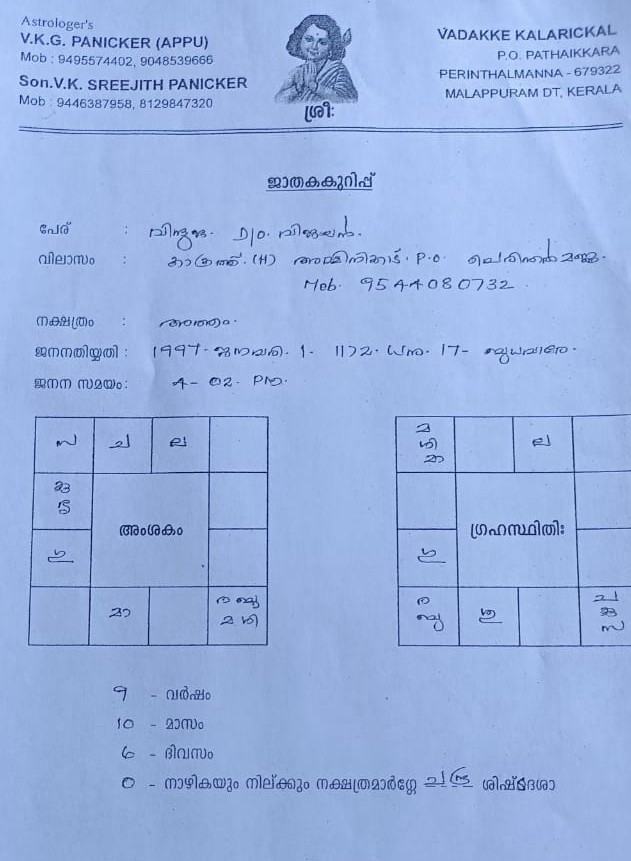 Astrologer's
V.K.G. PANICKER (APPU)
Mob : 9495574402, 9048539666
Son.V.K. SREEJITH PANICKER
Mob : 9446387958, 8129847320
ശ്രീഃ
VADAKKE KALARICKAL
P.O. PATHAIKKARA
PERINTHALMANNA - 679322
MALAPPURAM DT, KERALA
ജാതകകുറിപ്പ്
പേര് : D/o. വിജയൻ.
വിലാസം : (H) P.O.
Mob. 9544080732.
നക്ഷത്രം : അത്തം.
ജനനതിയ്യതി : 1997- ജനുവരി. 1- 1172. ധനു. 17- ബുധനാഴ്ച.
ജനന സമയം: 4- 02. PM.
സ ച ല
കു
ഗു
അംശകം
മാ ര ബു
മ ശി
മ
ശി
മാ
ല
ഗ്രഹസ്ഥിതിഃ
ര
ബു
ശു
ച
കു
സ
9 - വർഷം
10 - മാസം
6 - ദിവസം
0 - നാഴികയും നില്ക്കും നക്ഷത്രമാർഗ്ഗേ ചന്ദ്ര ശിഷ്ടദേശാ